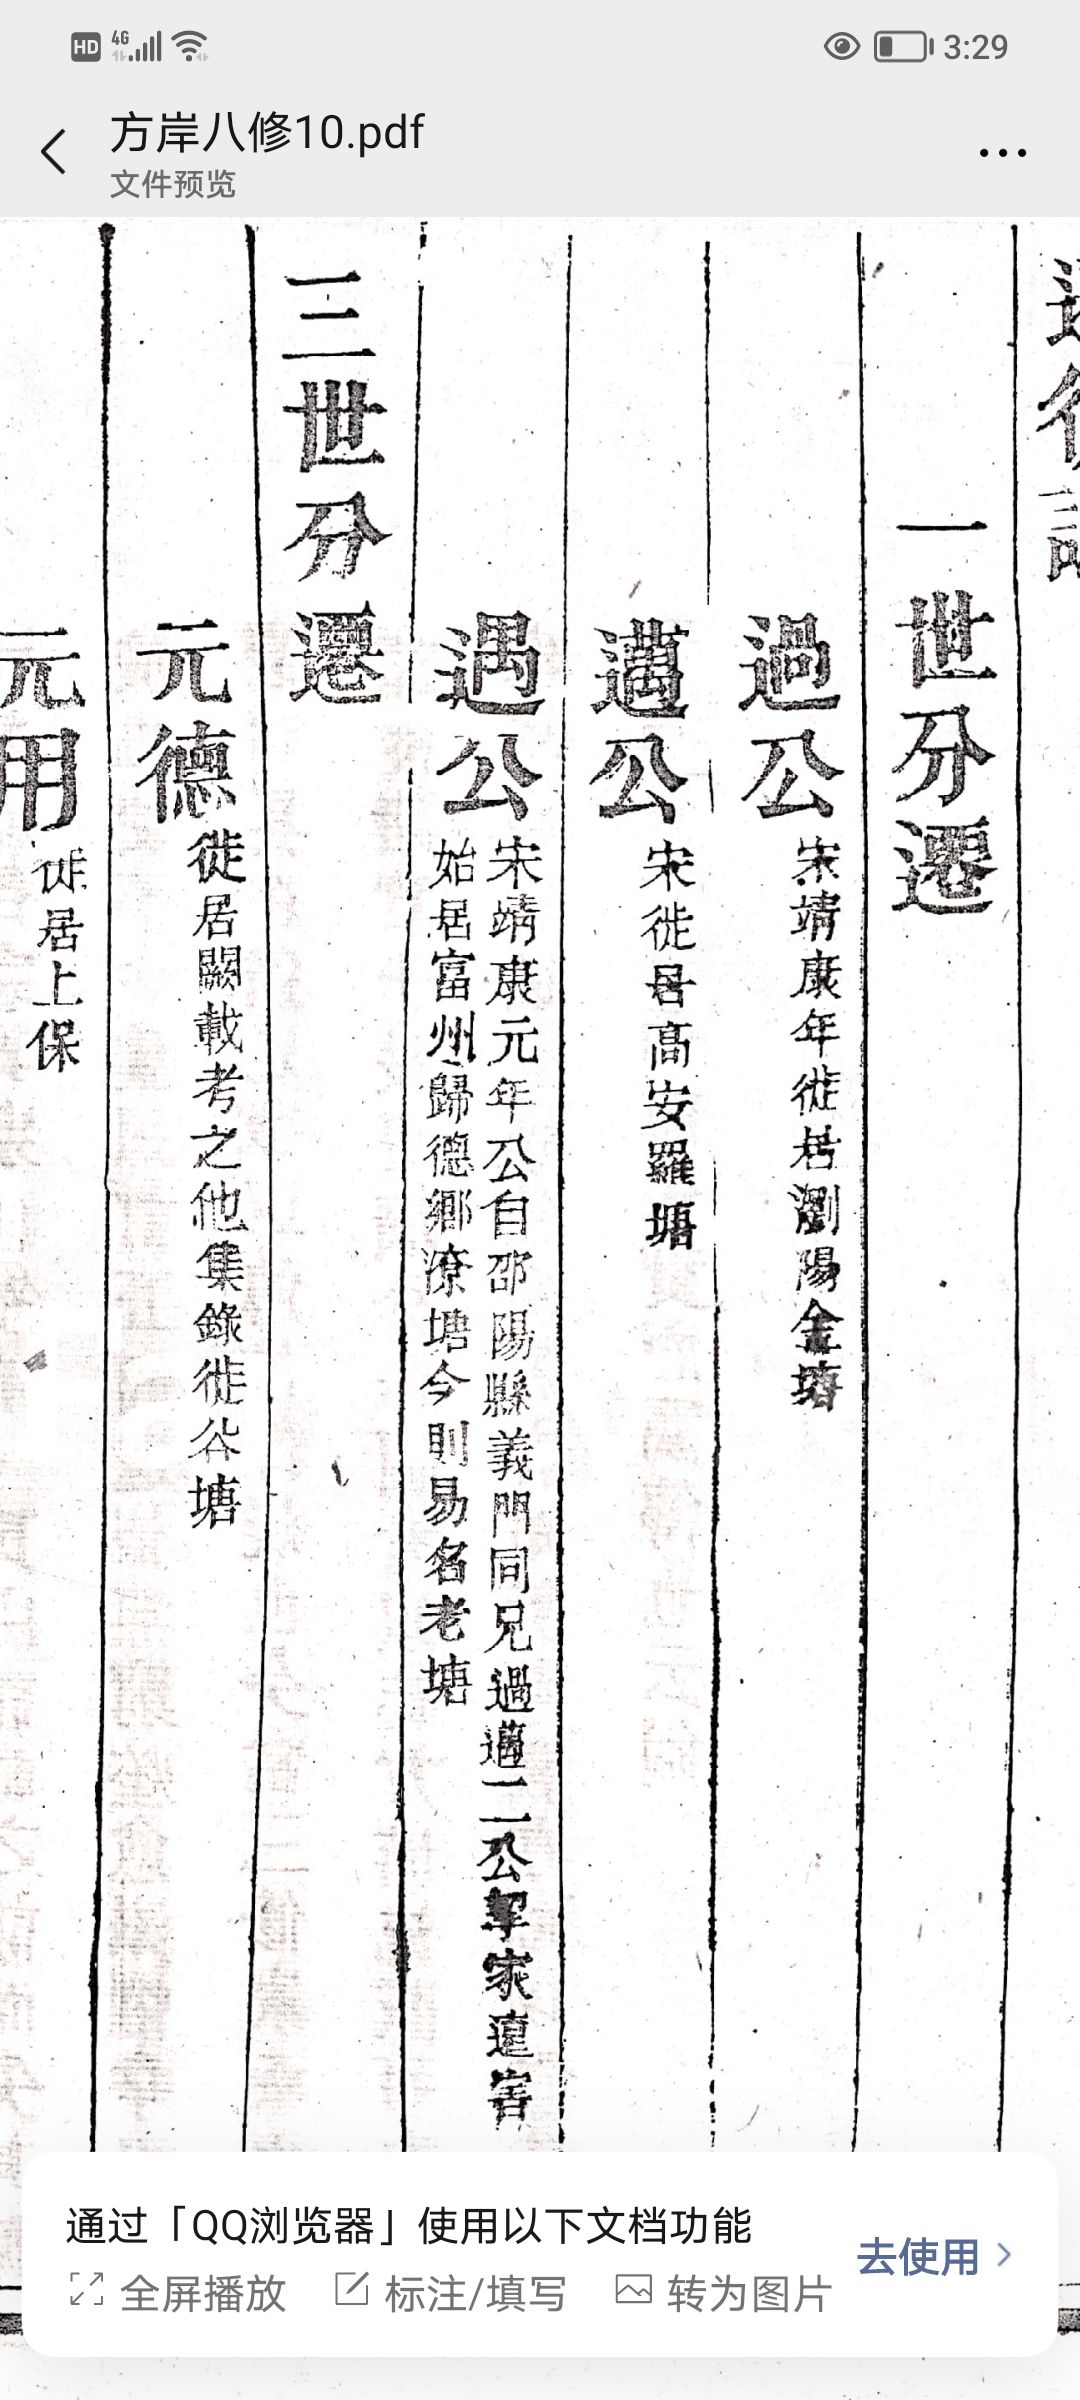 HD 4G 3:29
方岸八修10.pdf
文件预览
一世分遷
過公 宋靖康年徙居瀏陽金塘
邁公 宋徙居高安羅塘
遇公 宋靖康元年公自邵陽縣義門同兄過邁二公挈家遠害
始居富州歸德鄉潦塘今則易名老塘
三世分遷
元德 徙居闕載考之他集錄徙谷塘
元用 徙居上保
通过「QQ浏览器」使用以下文档功能
去使用
全屏播放 标注/填写 转为图片